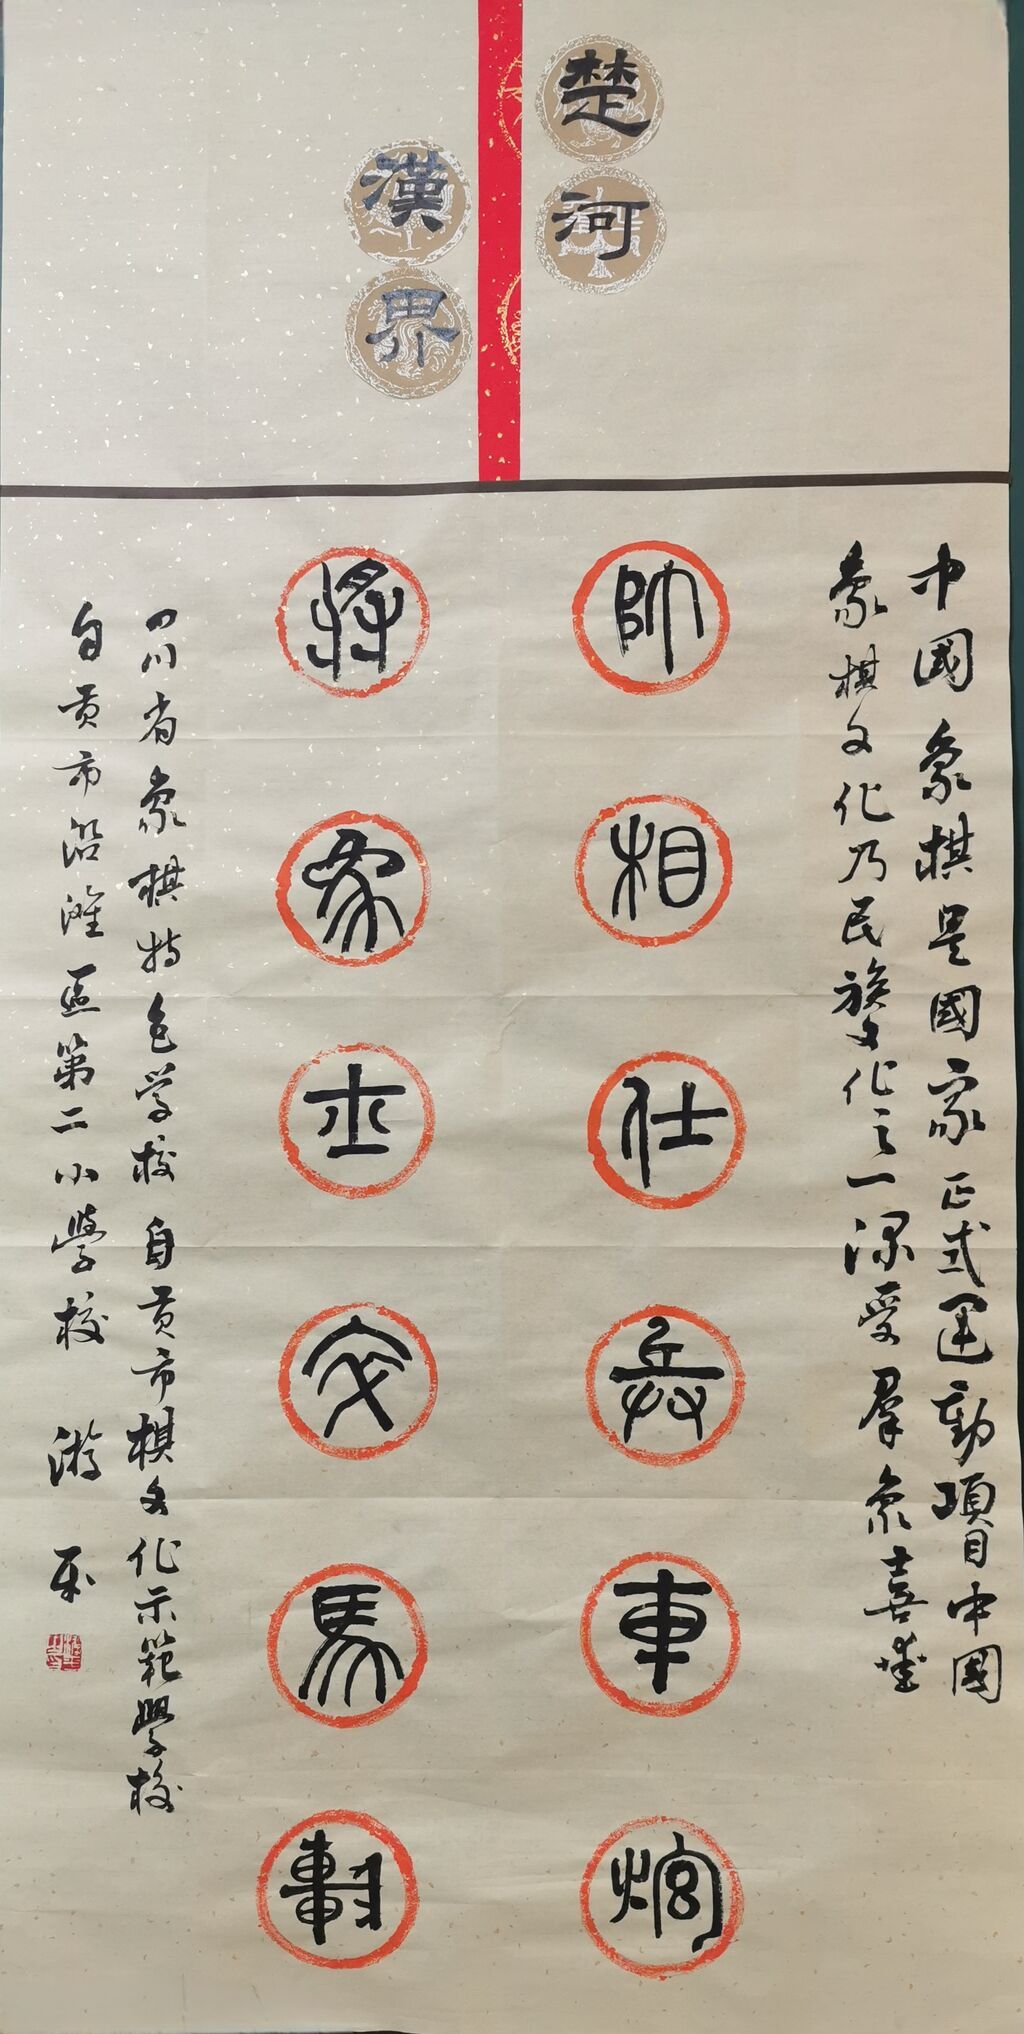 楚河
漢界
中國象棋是國家正式運動項目中國
象棋文化乃民族文化之一深受羣衆喜愛
帥
相
仕
兵
車
炮
將
象
士
卒
馬
四川省象棋特色学校自贡市棋文化示範學校
自贡市沿灘區第二小學校 游平